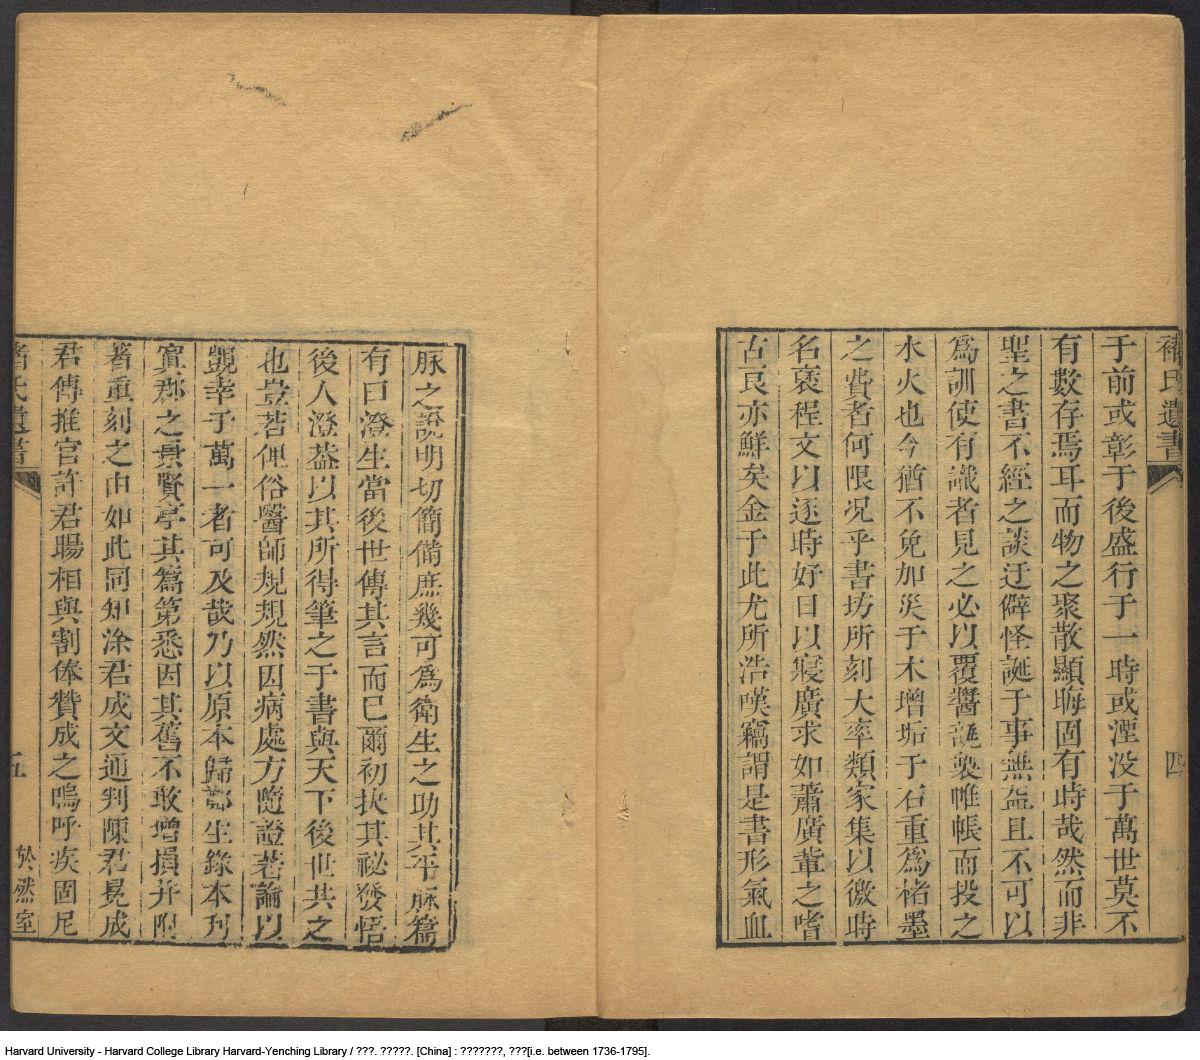 褚氏遺書
四
于前或彰于後盛行于一時或湮没于萬世莫不
有數存焉耳而物之聚散顯晦固有時哉然而非
聖之書不經之談迂僻怪誕于事無益且不可以
爲訓使有識者見之必以覆醬瓿製帷帳而投之
水火也今猶不免加災于木增垢于石重爲褚墨
之費者何限况乎書坊所刻大率類家集以徼時
名褒程文以逐時好日以寖廣求如蕭廣輩之嗜
古良亦鮮矣金于此尤所浩嘆竊謂是書形氣血
脉之說明切簡備庶幾可爲衛生之助其平脉篇
有曰澄生當後世傳其言而已爾初抉其秘發悟
後人澄葢以其所得筆之于書與天下後世共之
也豈若俚俗醫師規規然因病處方隨證著論以
覬幸于萬一者可及哉乃以原本歸鄭生錄本刋
寘郡之景賢亭其篇第悉因其舊不敢增損并附
著重刻之由如此同知涂君成文通判陳君晃成
君傳推官許君暘相與割俸贊成之嗚呼疾固尼
褚氏遺書
五
於然室
Harvard University - Harvard College Library Harvard-Yenching Library / ???. ?????. [China] : ???????, ???[i.e. between 1736-1795].